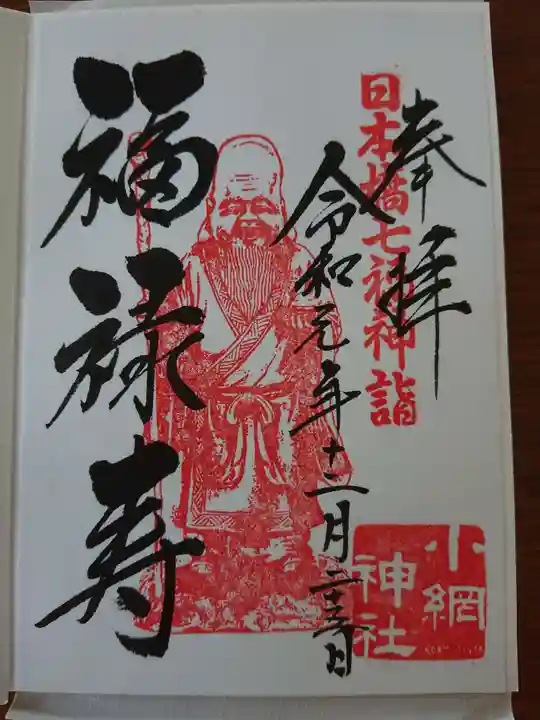 奉拝
日本橋七福神詣
令和元年十二月二十六日
福禄寿
小網
神社